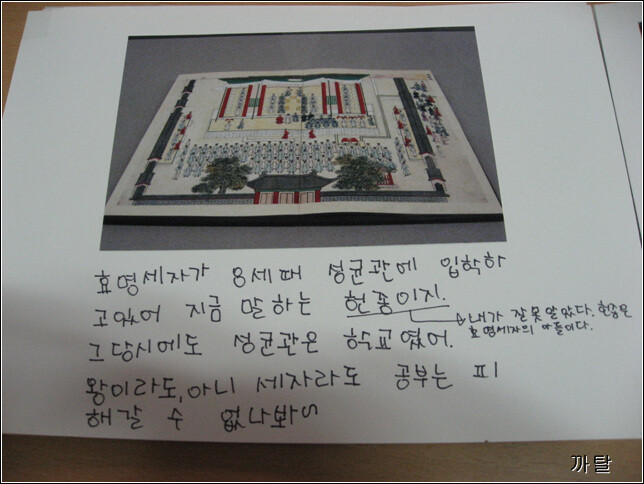 효명세자가 8세때 성균관에 입학하
고있어 지금 말하는 헌종이지.
내가 잘못 알았다. 헌종은
효명세자의 아들이다.
그당시에도 성균관은 학교였어.
왕이라도, 아니 세자라도 공부는 피
해갈 수 없나봐~
까탈